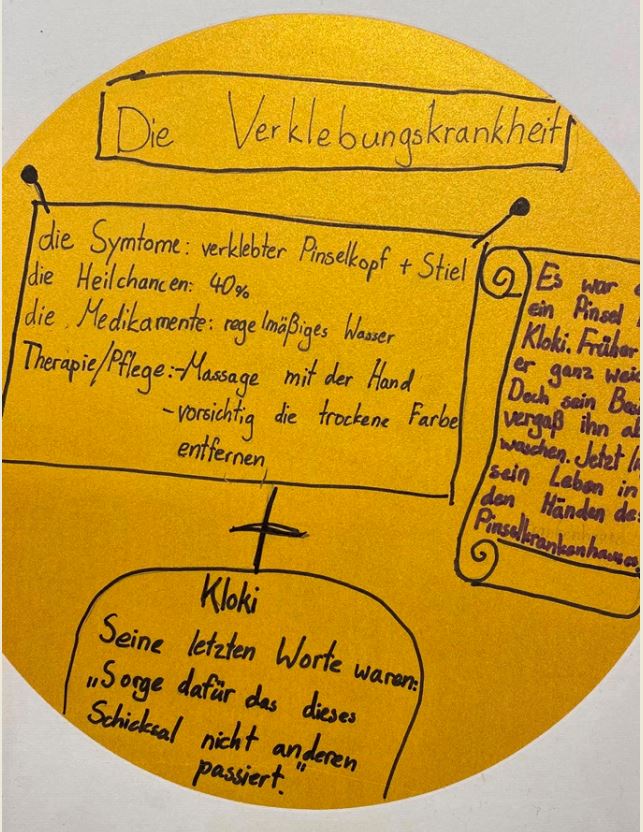 Die Verklebungskrankheit
die Symtome: verklebter Pinselkopf + Stiel
die Heilchancen: 40%
die Medikamente: regelmäßiges Wasser
Therapie/Pflege:-Massage mit der Hand
-vorsichtig die trockene Farbe
entfernen
Es war
ein Pinsel
Kloki. Früher
er ganz weic
Doch sein Be
vergaß ihn
waschen. Jetzt
sein Leben in
den Händen de
Pinselkrankenhauses
Kloki
Seine letzten Worte waren:
„Sorge dafür das dieses
Schicksal nicht anderen
passiert."